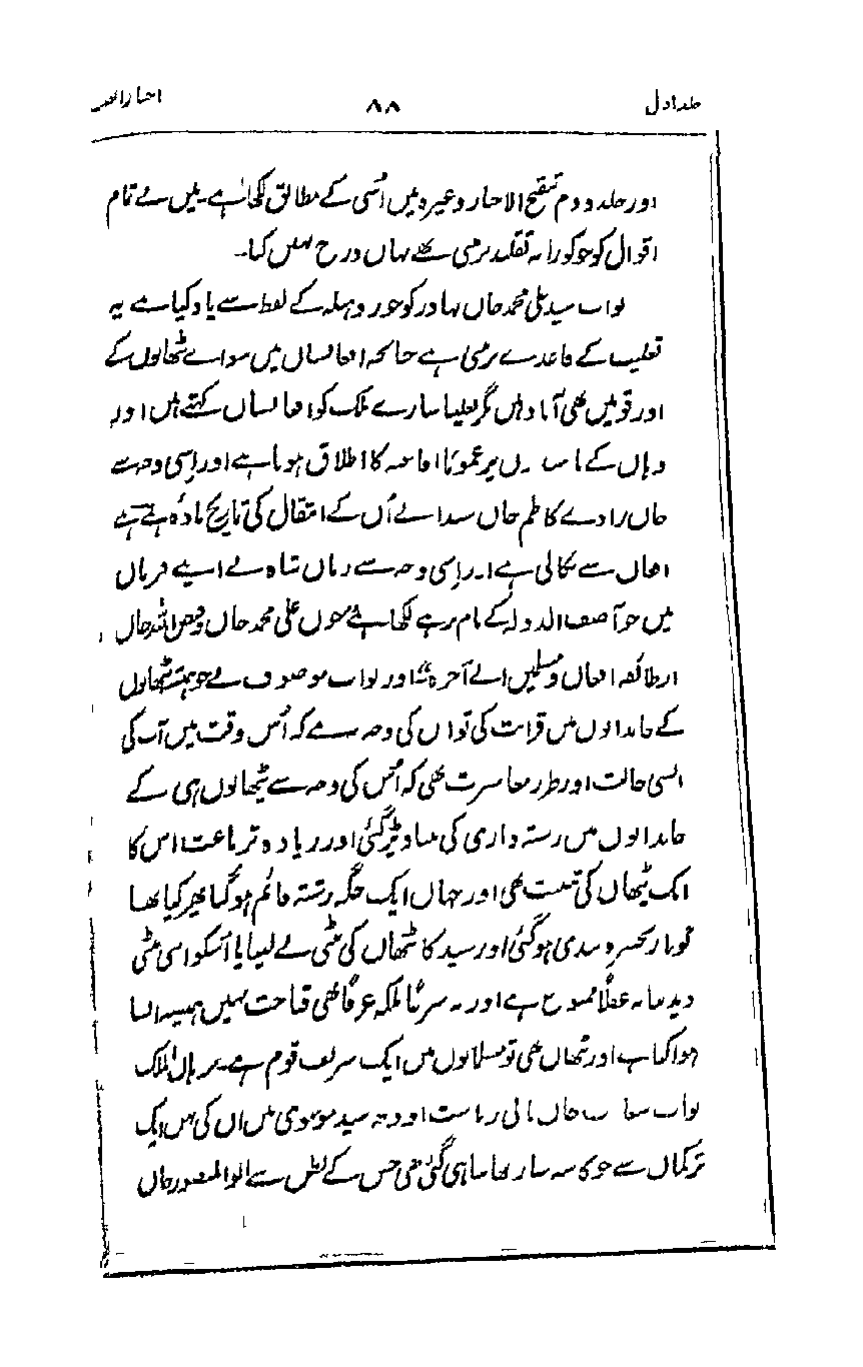 جلد اول ۸۸ اخبار الصنادید
اور جلد دوم تنقیح الاخبار وغیرہ میں اُسی کے مطابق لکھا ہے۔ میں نے تمام
اقوال کو جو کورانہ تقلید پر مبنی تھے یہاں درج نہیں کیا۔
نواب سید علی محمد خاں بہادر کو جو روہیلہ کے لفظ سے یاد کیا ہے یہ
تغلیب کے قاعدے پر مبنی ہے چنانچہ افغانستان میں سوائے پٹھانوں کے
اور قومیں بھی آباد ہیں مگر تغلیباً سارے ملک کو افغانستان کہتے ہیں اور
وہاں کے باشندوں پر عموماً افاغنہ کا اطلاق ہوتا ہے اور اسی وجہ سے
خاں زادے کاظم خاں شیدا نے اُن کے انتقال کی تاریخ مادہ
افغان سے نکالی ہے اور اسی وجہ سے زمان شاہ نے اپنے فرمان
میں جو آصف الدولہ کے نام ہے لکھا ہے چوں علی محمد خاں و فیض اللہ خاں
از طائفہ افغان و مسلمین الے آخرہ اور نواب موصوف نے جو پٹھانوں
کے خاندانوں میں قرابت کی تو اس کی وجہ یہ ہے کہ اُس وقت میں آپ کی
ایسی حالت اور طرز معاشرت تھی کہ اُس کی وجہ سے پٹھانوں ہی کے
خاندانوں میں رشتہ داری کی بنیاد پڑ گئی اور زیادہ تر باعث اس کا
ایک پٹھان کی تھی اور جہاں ایک جگہ رشتہ قائم ہو گیا پھر کیا تھا
گویا زنجیرہ بندی ہو گئی اور سید کا پٹھان کی بیٹی لے لینا یا اُسکو اپنی بیٹی
دیدینا نہ عقلاً ممنوع ہے اور نہ شرعاً بلکہ عرفاً بھی قباحت نہیں ہمیشہ ایسا
ہوا کیا ہے اور پٹھان بھی تو مسلمانوں میں ایک شریف قوم ہے۔ برہان الملک
نواب سعادت خاں بانی ریاست اودھ سید موسوی ہیں ان کی بہن ایک
ترکمان سے جو بیاہی گئی تھی جس کے بطن سے ابو المنصور خاں